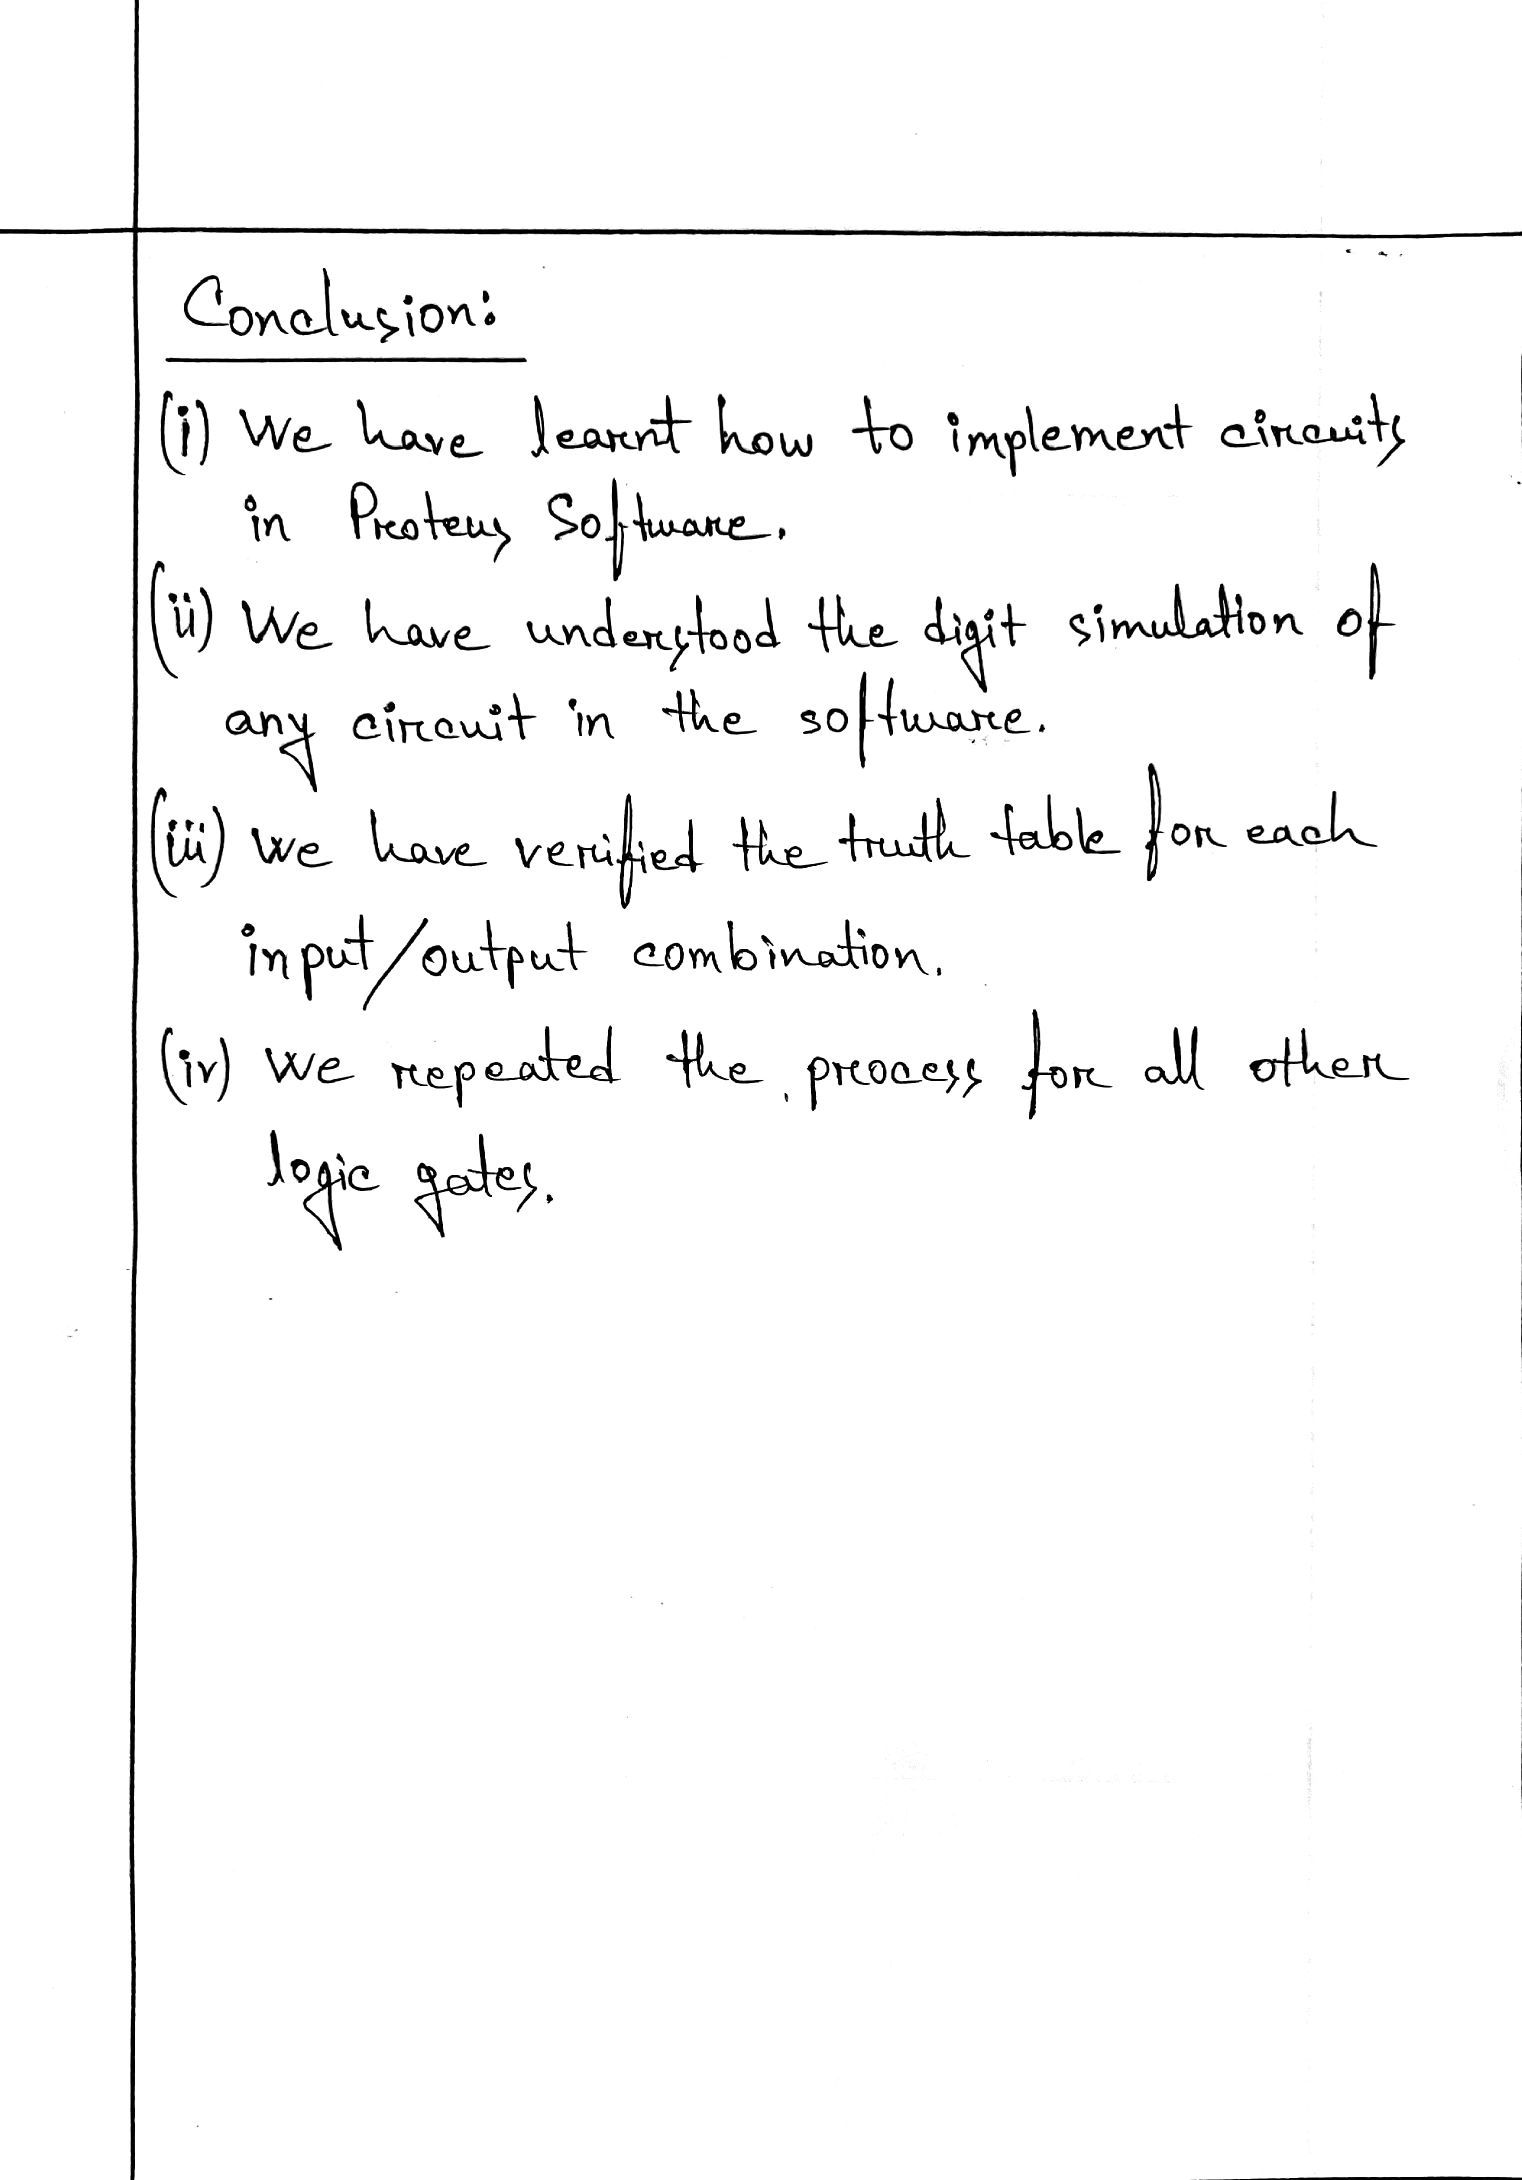 Conclusion:
(i) We have learnt how to implement circuits
in Proteus Software.
(ii) We have understood the digit simulation of
any circuit in the software.
(iii) we have verified the truth table for each
input/output combination.
(iv) we repeated the process for all other
logic gates.